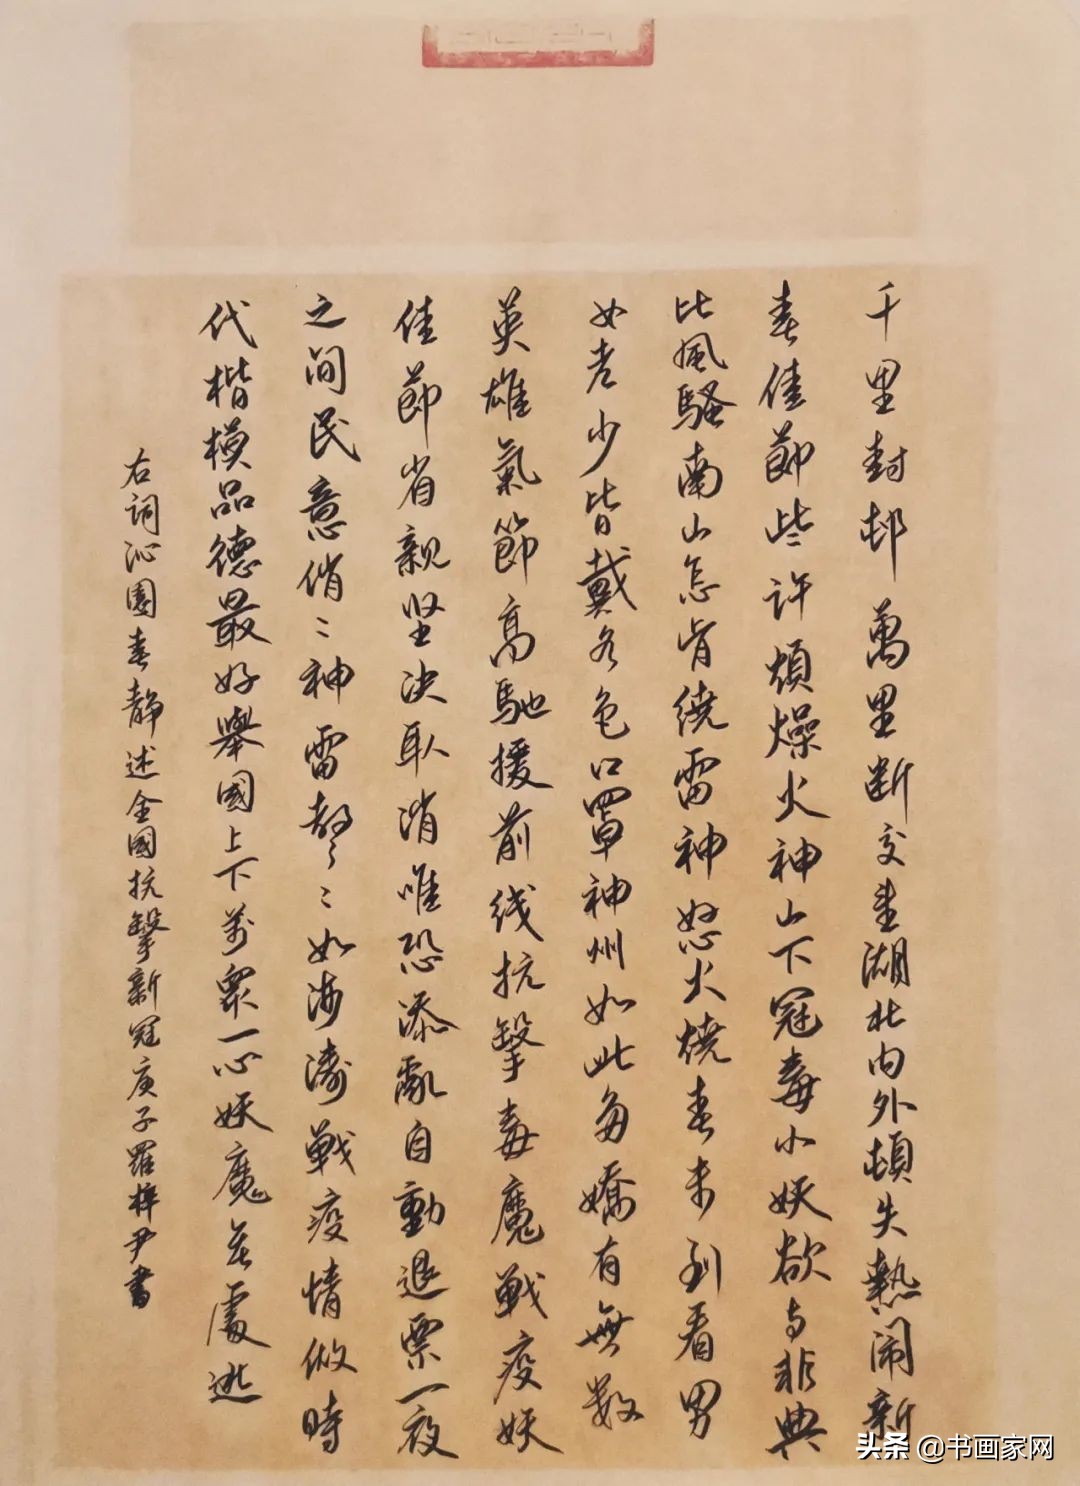 千里封邨萬里断交走湖北内外頓失熱闹新
春佳節些許煩燥火神山下冠毒小妖欲与非典
比風騷南山怎肯繞雷神怒火燒春未到看男
女老少皆戴各色口罩神州如此多嬌有無数
英雄氣節高馳援前线抗擊毒魔戰疫妖
佳節省親坚决取消唯恐添亂自動退票一夜
之间民意俏〻神雷愁〻如海濤戰疫情做時
代楷模品德最好舉國上下萬衆一心妖魔無處逃
右词沁園春静述全國抗擊新冠庚子羅梓尹書
头条 @书画家网